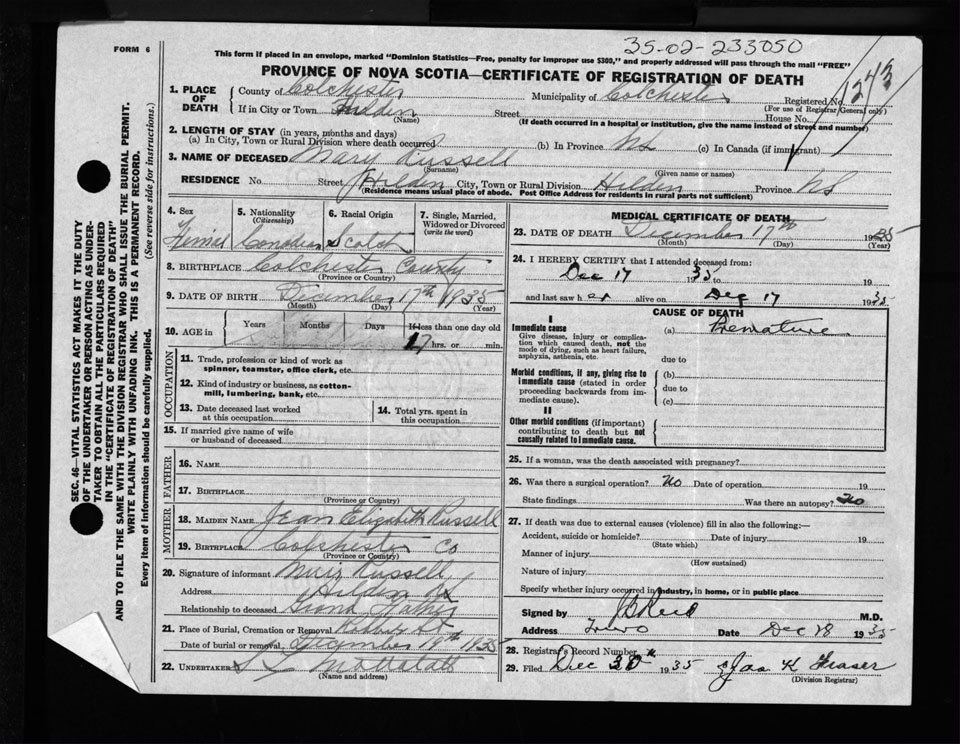 FORM 6
35-02-233050
This form if placed in an envelope, marked "Dominion Statistics—Free, penalty for improper use $300," and properly addressed will pass through the mail "FREE"
PROVINCE OF NOVA SCOTIA—CERTIFICATE OF REGISTRATION OF DEATH
1. PLACE OF DEATH
County of Colchester Municipality of Colchester Registered No. 1243
(For use of Registrar General only)
If in City or Town Hilden Street House No.
(Name) (If death occurred in a hospital or institution, give the name instead of street and number)
2. LENGTH OF STAY (in years, months and days)
(a) In City, Town or Rural Division where death occurred (b) In Province NS (c) In Canada (if immigrant)
3. NAME OF DECEASED Mary Russell
(Surname) (Given name or names)
RESIDENCE No. Street Hilden City, Town or Rural Division Hilden Province NS
(Residence means usual place of abode. Post Office Address for residents in rural parts not sufficient)
SEC. 46—VITAL STATISTICS ACT MAKES IT THE DUTY
OF THE UNDERTAKER OR PERSON ACTING AS UNDER-
TAKER TO OBTAIN ALL THE PARTICULARS REQUIRED
IN THE "CERTIFICATE OF REGISTRATION OF DEATH"
AND TO FILE THE SAME WITH THE DIVISION REGISTRAR WHO SHALL ISSUE THE BURIAL PERMIT.
WRITE PLAINLY WITH UNFADING INK. THIS IS A PERMANENT RECORD.
Every item of information should be carefully supplied. (See reverse side for instructions.)
4. Sex 5. Nationality (Citizenship) 6. Racial Origin 7. Single, Married, Widowed or Divorced (write the word)
Female Canadian Scotch
8. BIRTHPLACE Colchester County
(Province or Country)
9. DATE OF BIRTH December 17th 1935
(Month) (Day) (Year)
10. AGE in Years Months Days If less than one day old
17 hrs. or min.
OCCUPATION
11. Trade, profession or kind of work as
spinner, teamster, office clerk, etc.
12. Kind of industry or business, as cotton-
mill, lumbering, bank, etc.
13. Date deceased last worked
at this occupation
14. Total yrs. spent in
this occupation
15. If married give name of wife
or husband of deceased
FATHER
16. NAME
17. BIRTHPLACE
(Province or Country)
MOTHER
18. MAIDEN NAME Jean Elizabeth Russell
19. BIRTHPLACE Colchester Co
(Province or Country)
20. Signature of informant Russell
Address Hilden NS
Relationship to deceased Grand Father
21. Place of Burial, Cremation or Removal
Date of burial or removal December 19th 1935
22. UNDERTAKER
(Name and address)
MEDICAL CERTIFICATE OF DEATH
23. DATE OF DEATH December 17th 1935
(Month) (Day) (Year)
24. I HEREBY CERTIFY that I attended deceased from:
Dec 17 1935 to 19
and last saw her alive on Dec 17 1935
CAUSE OF DEATH
I
Immediate cause (a) Premature
Give disease, injury or complica-
tion which caused death, not the
mode of dying, such as heart failure,
asphyxia, asthenia, etc.
due to
Morbid conditions, if any, giving rise to (b)
immediate cause (stated in order
proceeding backwards from im-
mediate cause).
due to
(c)
II
Other morbid conditions (if important)
contributing to death but not
causally related to immediate cause.
25. If a woman, was the death associated with pregnancy?
26. Was there a surgical operation? No Date of operation 19
State findings Was there an autopsy? No
27. If death was due to external causes (violence) fill in also the following:—
Accident, suicide or homicide? Date of injury 19
(State which)
Manner of injury
(How sustained)
Nature of injury
Specify whether injury occurred in industry, in home, or in public place
Signed by J B Reid M.D.
Address Truro Date Dec 18 1935
28. Registrar's Record Number
29. Filed Dec 20th 1935 Jas K Fraser
(Division Registrar)